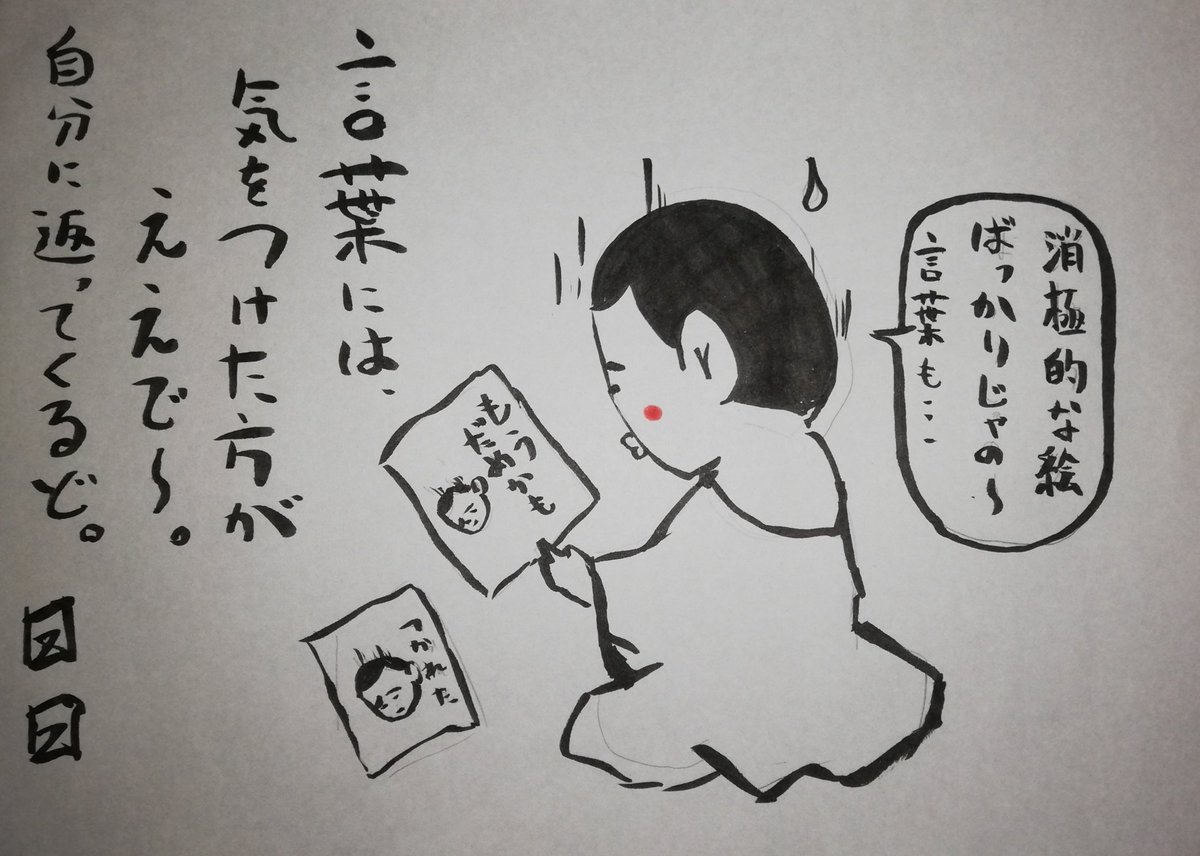 消極的な絵
ばっかりじゃの〜
言葉も・・・
もうだめかも
つかれた
言葉には、
気をつけた方が
ええで〜。
自分に返ってくるど。